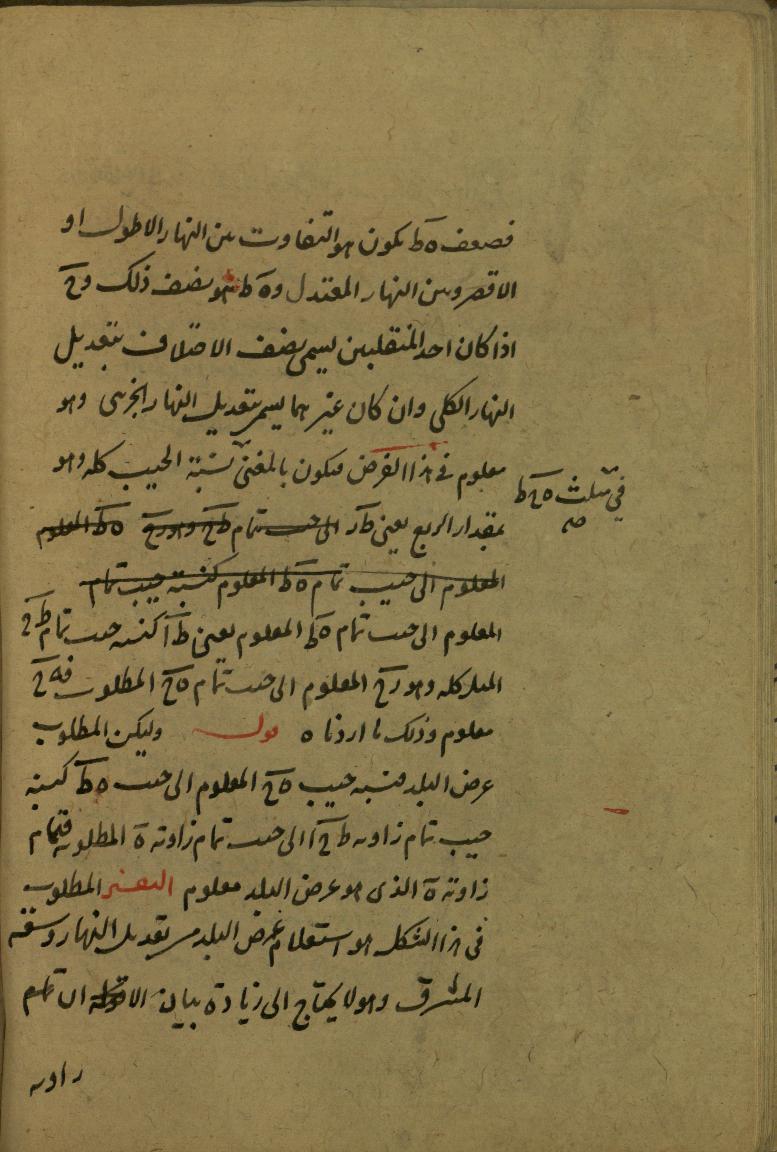 فضعف ه ط يكون هو التفاوت بين النهار الاطول او
الاقصر وبين النهار المعتدل و ه ط هو نصف ذلك و ح
اذا كان احد المنقلبين يسمى نصف الاختلاف بتعديل
النهار الكلى وان كان غيرهما يسمى بتعديل النهار الجزئى وهو
معلوم فى هذا الفرض فيكون بالمغنى نسبة الجيب كله وهو
فى مثلث ه ح ط
صح
بمقدار الربع يعنى ط الى جيب تمام ط ح ه ط المعلوم
المعلوم الى جيب تمام ه ط المعلوم كنسبة جيب تمام
المعلوم الى جيب تمام ه ط المعلوم يعنى ط ا كنسبة جيب تمام ط ح
الميل كله وهو ر ح المعلوم الى جيب تمام ه ح المطلوب فه ح
معلوم وذلك ما اردنا ه قوله وليكن المطلوب
عرض البلد فنسبة جيب ه ح المعلوم الى جيب ه ط كنسبة
جيب تمام زاوية ط ح ا الى جيب تمام زاوية ه المطلوبة فتمام
زاوية ه الذى هو عرض البلد معلوم التفسير المطلوب
فى هذا الشكل هو استعلام عرض البلد من تعديل النهار وسعة
المشرق وهو لا يحتاج الى زيادة بيان الا ان تمام
زاوية